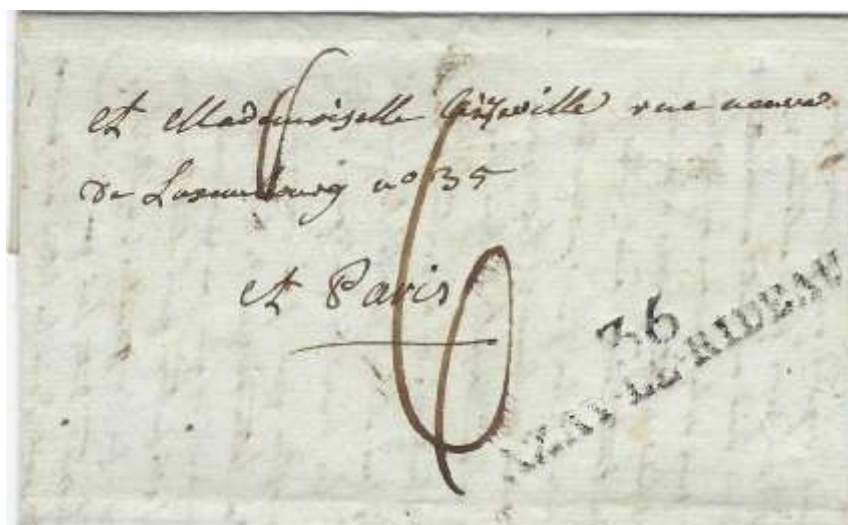 A Mademoiselle rue neuve
de Luxembourg n° 35
A Paris
6
36
AZAY-LE-RIDEAU